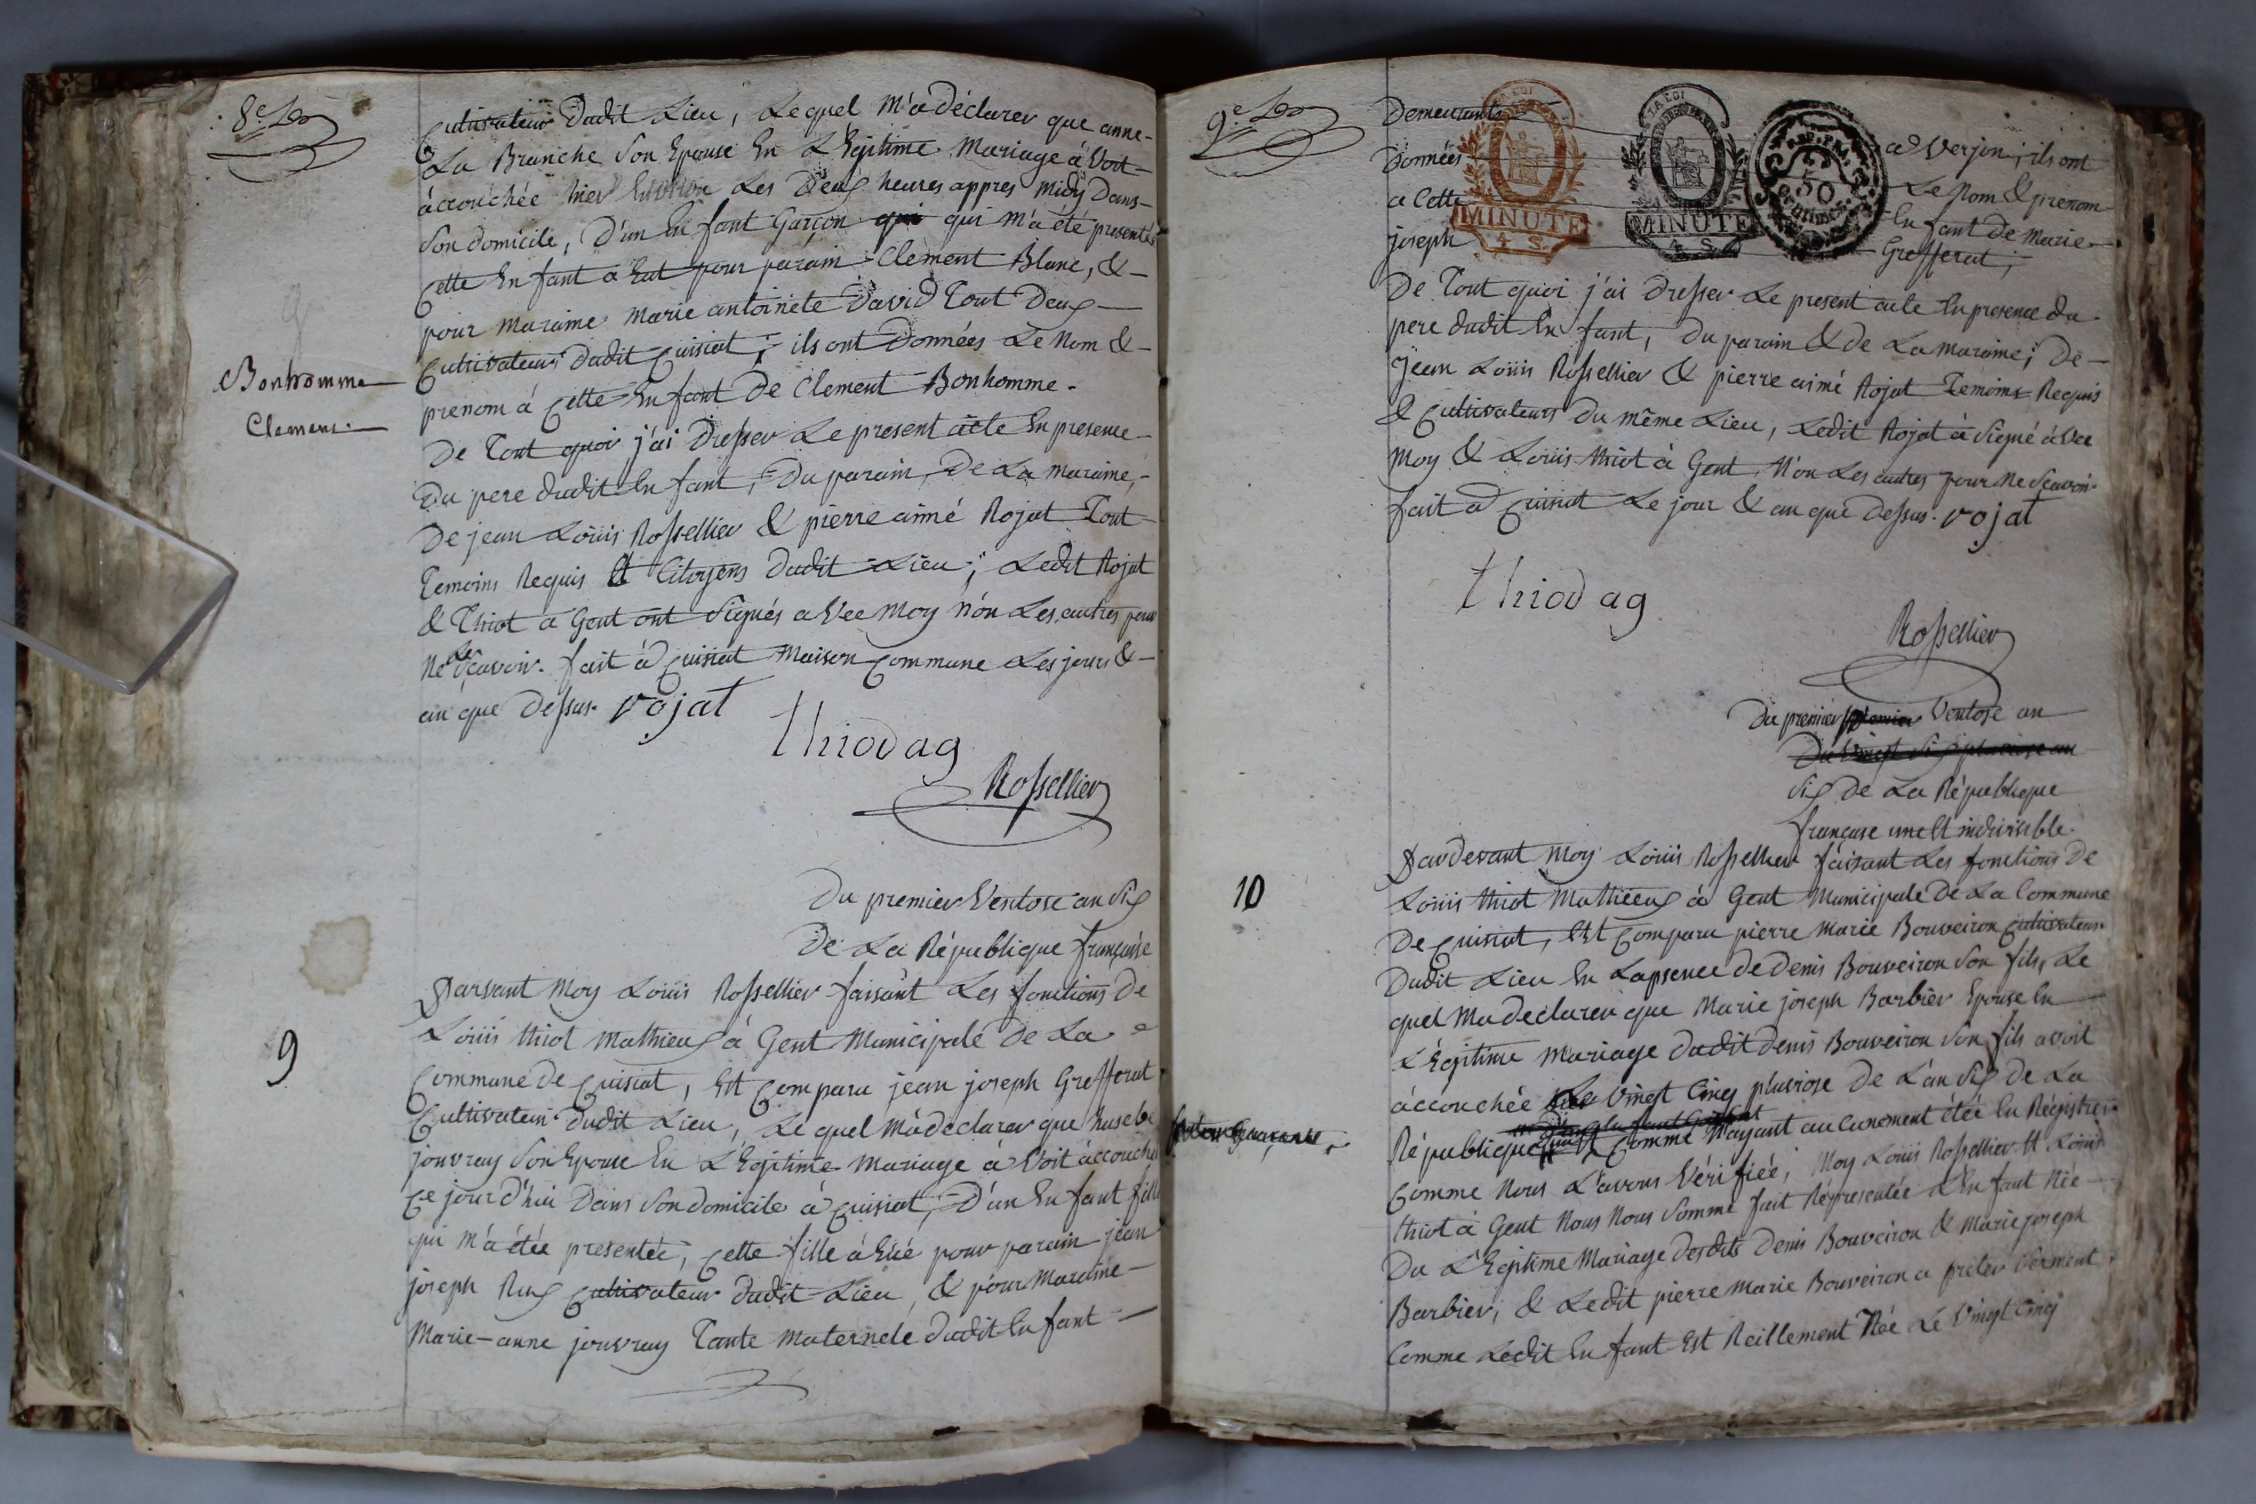 8e
Cultivateur Dudit Lieu, Lequel M'a Déclarer que anne-
La Branche Son Epouse En L'Egitime Mariage à Voit
àccouchée hier Environ Les Deux heures appres Midy Dans-
Son domicile, D'un En fant Garçon qui qui M'a été presentés
Cette En fant a Eut pour parain Clement Blanc, &-
pour Maraime Marie antoinete David Tout Deux
Cultivateur Dudit Cuisiat; ils ont Données Le Nom &-
prenom à Cette En fant De Clement Bonhomme.
Bonhomme
Clement.
De Tout quoi j'ai Dresser Le present acte En presence-
Du pere dudit En fant, Du parain, De La Maraime,-
De jean Loüis Rossellier & pierre aimé Rojat Tout
Temoins Requis Et Citoyens Dudit Lieu; Ledit Rojat
& Thiot a Gent ont Signés a Vec Moy Nón Les autres pour
Ne Le Scavoir. fait à Cuisiat Maison Commune Les jours &-
an que Dessus. rojat
thiod ag
Rossellier
Du premier Ventose an Six
De La République française
9
Parvant Moy Loüis Rossellier faisant Les fonctions De
Loüis thiot Mathieux à Gent Municipale De La
Commune de Cuisiat, Est Comparu jean joseph Grefferat
Cultivateur Dudit Lieu, Le quel M'a declarer que husebe
jouvray Son Epouse En L'Egitime Mariage à Voit àccouché
Ce jour d'hui Dans Son domicile à Cuisiat, D'un En fant fille
qui M'a étée presentée, Cette fille à Eué pour parain jean
joseph Rux Cultivateur dudit Lieu, & pour Maraime-
Marie-anne jouvray Tante Maternele dudit En fant
9e
Demeurants a Verjon; ils ont
Données Le Nom & prenom
a Cette En fant De Marie
joseph Grefferat;
LA LOI
MINUTE
4 S.
LA LOI
MINUTE
50
Centimes
De Tout quoi j'ai Dresser Le present acte En presence du
pere dudit En fant, Du parain & de La maraime; De-
Jean Loüis Rossellier & pierre aimé Rojat Temoins Requis
& Cultivateurs Du même Lieu, Ledit Rojat à Signé àvec
Moy & Loüis thiot à Gent Nón Les autres pour Ne Scavoir.
fait a Cuisiat Le jour & an que Dessus. rojat
thiod ag
Rossellier
Du premier Ventose an
Six De La République
française une Et indivisible.
10
Pardevant Moy Loüis Rossellier faisant Les fonctions De
Loüis thiot Mathieux à Gent Municipale De La Commune
De Cuisiat, Est Comparu pierre Marie Bouveiron Cultivateur
Dudit Lieu En Lapsence de Denis Bouveiron Son fils, Le
quel Ma declarer que Marie joseph Barbier Epouse En
L'Egitime Mariage dudit Denis Bouveiron Son fils avoit
àccouchée Le Vingt Cinq pluviose De L'an Six De La
République Comme N'ayant aucunement étée En Régistrer
Comme Nous L'avons Vérifiée; Moy Loüis Rossellier Et Loüis
thiot à Gent Nous Nous Somme fait Répresentée L'En fant Née
Du L'Egitime Mariage Desdits Denis Bouveiron & Marie joseph
Barbier, & Ledit pierre Marie Bouveiron a preter Serment
Comme Ledit En fant Est Reillement Née Le Vingt Cinq